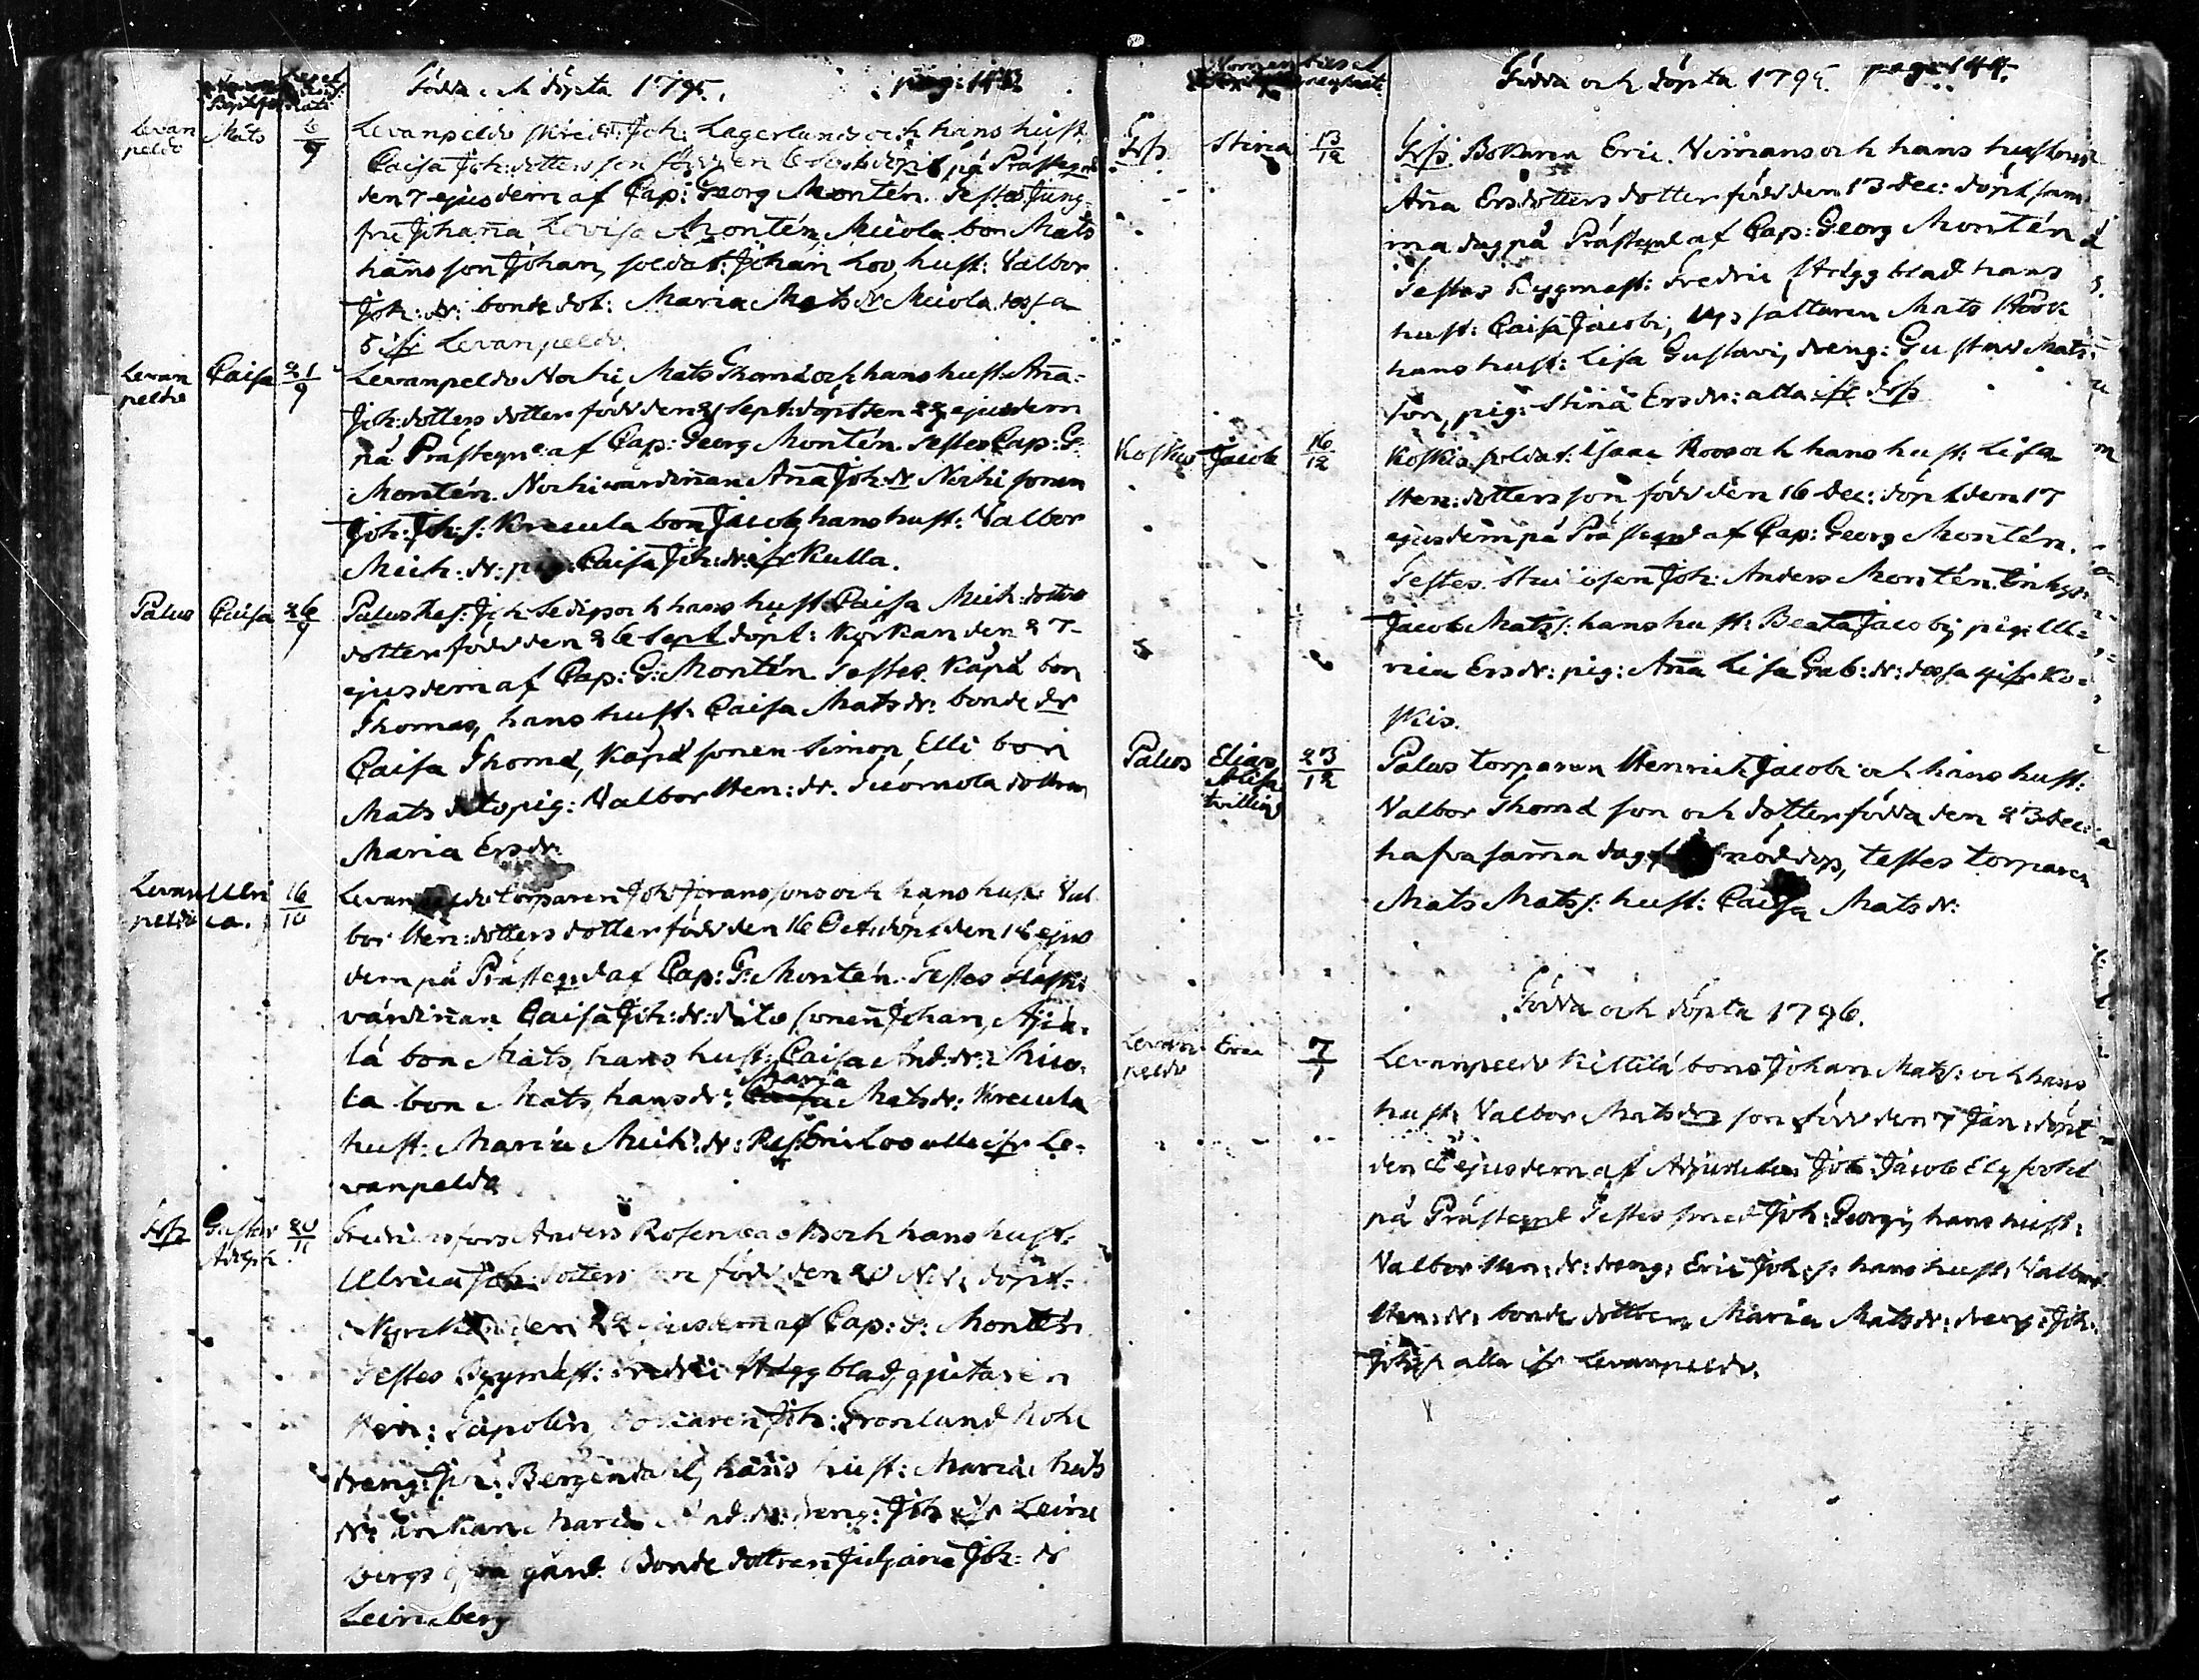 Födda och döpta 1795. pag: 143
Levan peldo Mats 6/9 Levanpeldo Joh: Lagerlunds och hans hust:
Caisa Joh:dotters son född den 6 och döpt på Prästegrd
den 7 ejusdem af Cap: Georg Montén. Testes Jung-
fru Johaña Lovisa Montén, Micola bon Mats
hans son Johan, soldat: Johan Loo, hust: Valbor
Joh: dr: bonde dot: Maria Mats dr Micola dessa
5 ifr Levanpeldo
Levan peldo Caisa 21/9 Levanpeldo Nocki, Mats Thomæ och hans hust: Aña
Joh:dotters dotter född den 21 Sept: döpt den 22 ejusdem
på Prästegrd af Cap: Georg Montén. Testes Cap: G:
Montén. Nocki wärdiñan Aña Joh: dr Nocki sonen
Joh: Joh: s: Krecula bon Jacob, hans hust: Valbor
Mich: dr: pig: Caisa Joh: dr: ifr Kulla.
Palus Caisa 26/9 Palus Joh: och hans hust: Caisa Mich: dotters
dotter född den 26 Sept döpt: Kyrkan den 27
ejusdem af Cap: G: Montén Testes Käpä bon
Thomas, hans hust: Caisa Mats dr: bonde dr
Caisa Thomæ, Käpä sonen Simon, Elli bon
Mats dito pig: Valbor Hen: dr. dottren
Maria Ers dr:
Levan peldo Ulri ca. 16/10 Levanpeldo torparen Joh Joranssons och hans hust: Val
bor Hen: dotters dotter född den 16 Oct: döpt den 18 ejus
dem på Prästegrd af Cap: G: Montén. Testes
värdiñan Caisa Joh: dr: dito sonen Johan,
lä bon Mats, hans hust: Caisa And: dr: Mico-
la bon Mats, hans dr: Maria Mats dr: Krecula
hust: Maria Mich: dr: Loo alla ifr Le-
vanpeldo
Frsfs Gustav Adolph 20/11 Fredricsfors Anders och hans hust:
Ulrica Joh: dotters son född den 20 Nov: döpt
Kyrkan den 22 ejusdem af Cap: G: Montén
Testes Bygmäst: Fredric Häggblad, gjutaren
Hen: Tapolin, Bokaren Joh: Grönlund Kohl
dreng: Joh: Bergendahl, hans hust: Maria Mats
dr: änkan Maria dr: dreng: Joh ifr Leine
bergs gård. Bonde dottren Juliana Joh: dr
Leineberg
Födda och döpta 1795. pag: 144.
Frsfs Stina 13/12 Frsfs. Bokaren Eric Nimans och hans hustrus
Aña Ersdotters dotter född den 13 Dec: döpt sam
ma dag på Prästegrd af Cap: Georg Montén
Testes Bygmäst: Fredric Häggblad hans
hust: Caisa Jacobi, Upsattaren Mats Höök
hans hust: Lisa Gustavi, dreng: Gustav Mats-
son, pig: Stina Ers dr: alla ifr Frsfs
Koskis Jacob 16/12 Koskis soldat: Isaac Roos och hans hust: Lisa
Hen: dotters son född den 16 Dec: döpt den 17
ejusdem på Prästegrd af Cap: Georg Montén.
Testes Studiosen Joh: Anders Montén.
Jacob Mats s: hans hust: Beata Jacobi, pig: Ul-
rica Ers dr: pig: Aña Lisa Gab: dr: dessa 4 ifr Ko-
skis.
Palus Elias Alisa tvilling 23/12 Palus torparen Henrich Jacobi och hans hust:
Valbor Thomæ son och dotter födda den 23 Dec:
hafva saṁa dag nöddop, testes torparen
Mats Mats s: hust: Caisa Mats dr:
Födda och döpta 1796.
Levan peldo Eric 7/1 Levanpeldo Kittilä bons Johan Mats s: och hans
hust: Valbor Mats drs son född den 7 Jan: döpt
den 8 ejusdem af Adjuncten Joh: Jacob Elgfoth
på Prästegrd Testes smed Joh: Georgi, hans hust:
Valbor Hen: dr: dreng: Eric Joh: s: hans hust: Valbor
Hen: dr: bonde dottren Maria Mats dr: dreng: Joh:
Joh: s: alla ifr Levanpeldo.